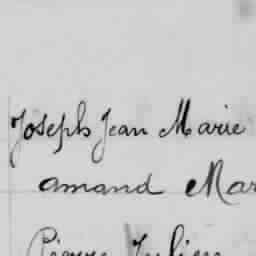 Joseph Jean Marie
amand Mar
Pierre Julien